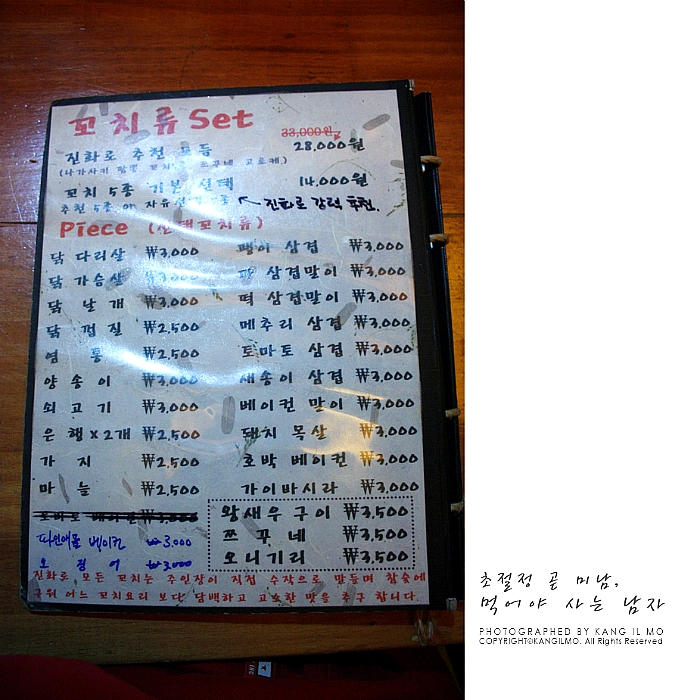 꼬치류 Set
33,000원
진화로 추천 모듬 28,000원
꼬치 5종 기본 선택 14,000원
추천 5종 or 자유선택 5종 ← 진화로 강력 추천.
Piece (선택꼬치류)
닭 다리살 ₩3,000 팽이 삼겹 ₩3,000
닭 가슴살 ₩3,000 삼겹말이 ₩3,000
닭 날개 ₩3,000 떡 삼겹말이 ₩3,000
닭 껍질 ₩2,500 메추리 삼겹 ₩3,000
염통 ₩2,500 토마토 삼겹 ₩3,000
양송이 ₩3,000 새송이 삼겹 ₩3,000
쇠고기 ₩3,000 베이컨 말이 ₩3,000
은행x2개 ₩2,500 돼지 목살 ₩3,000
가지 ₩2,500 호박 베이컨 ₩3,000
마늘 ₩2,500 가이바시라 ₩3,000
왕새우 구이 ₩3,500
쯔꾸네 ₩3,500
오니기리 ₩3,500
파인애플 베이컨 ₩3,000
오징어 ₩3,000
진화로 모든 꼬치는 주인장이 직접 수작으로 만들며 참숯에
구워 어느 꼬치요리 보다 담백하고 고소한 맛을 추구 합니다.
초절정 곧 미남,
먹어야 사는 남자
PHOTOGRAPHED BY KANG IL MO
COPYRIGHT©KANGILMO. All Rights Reserved